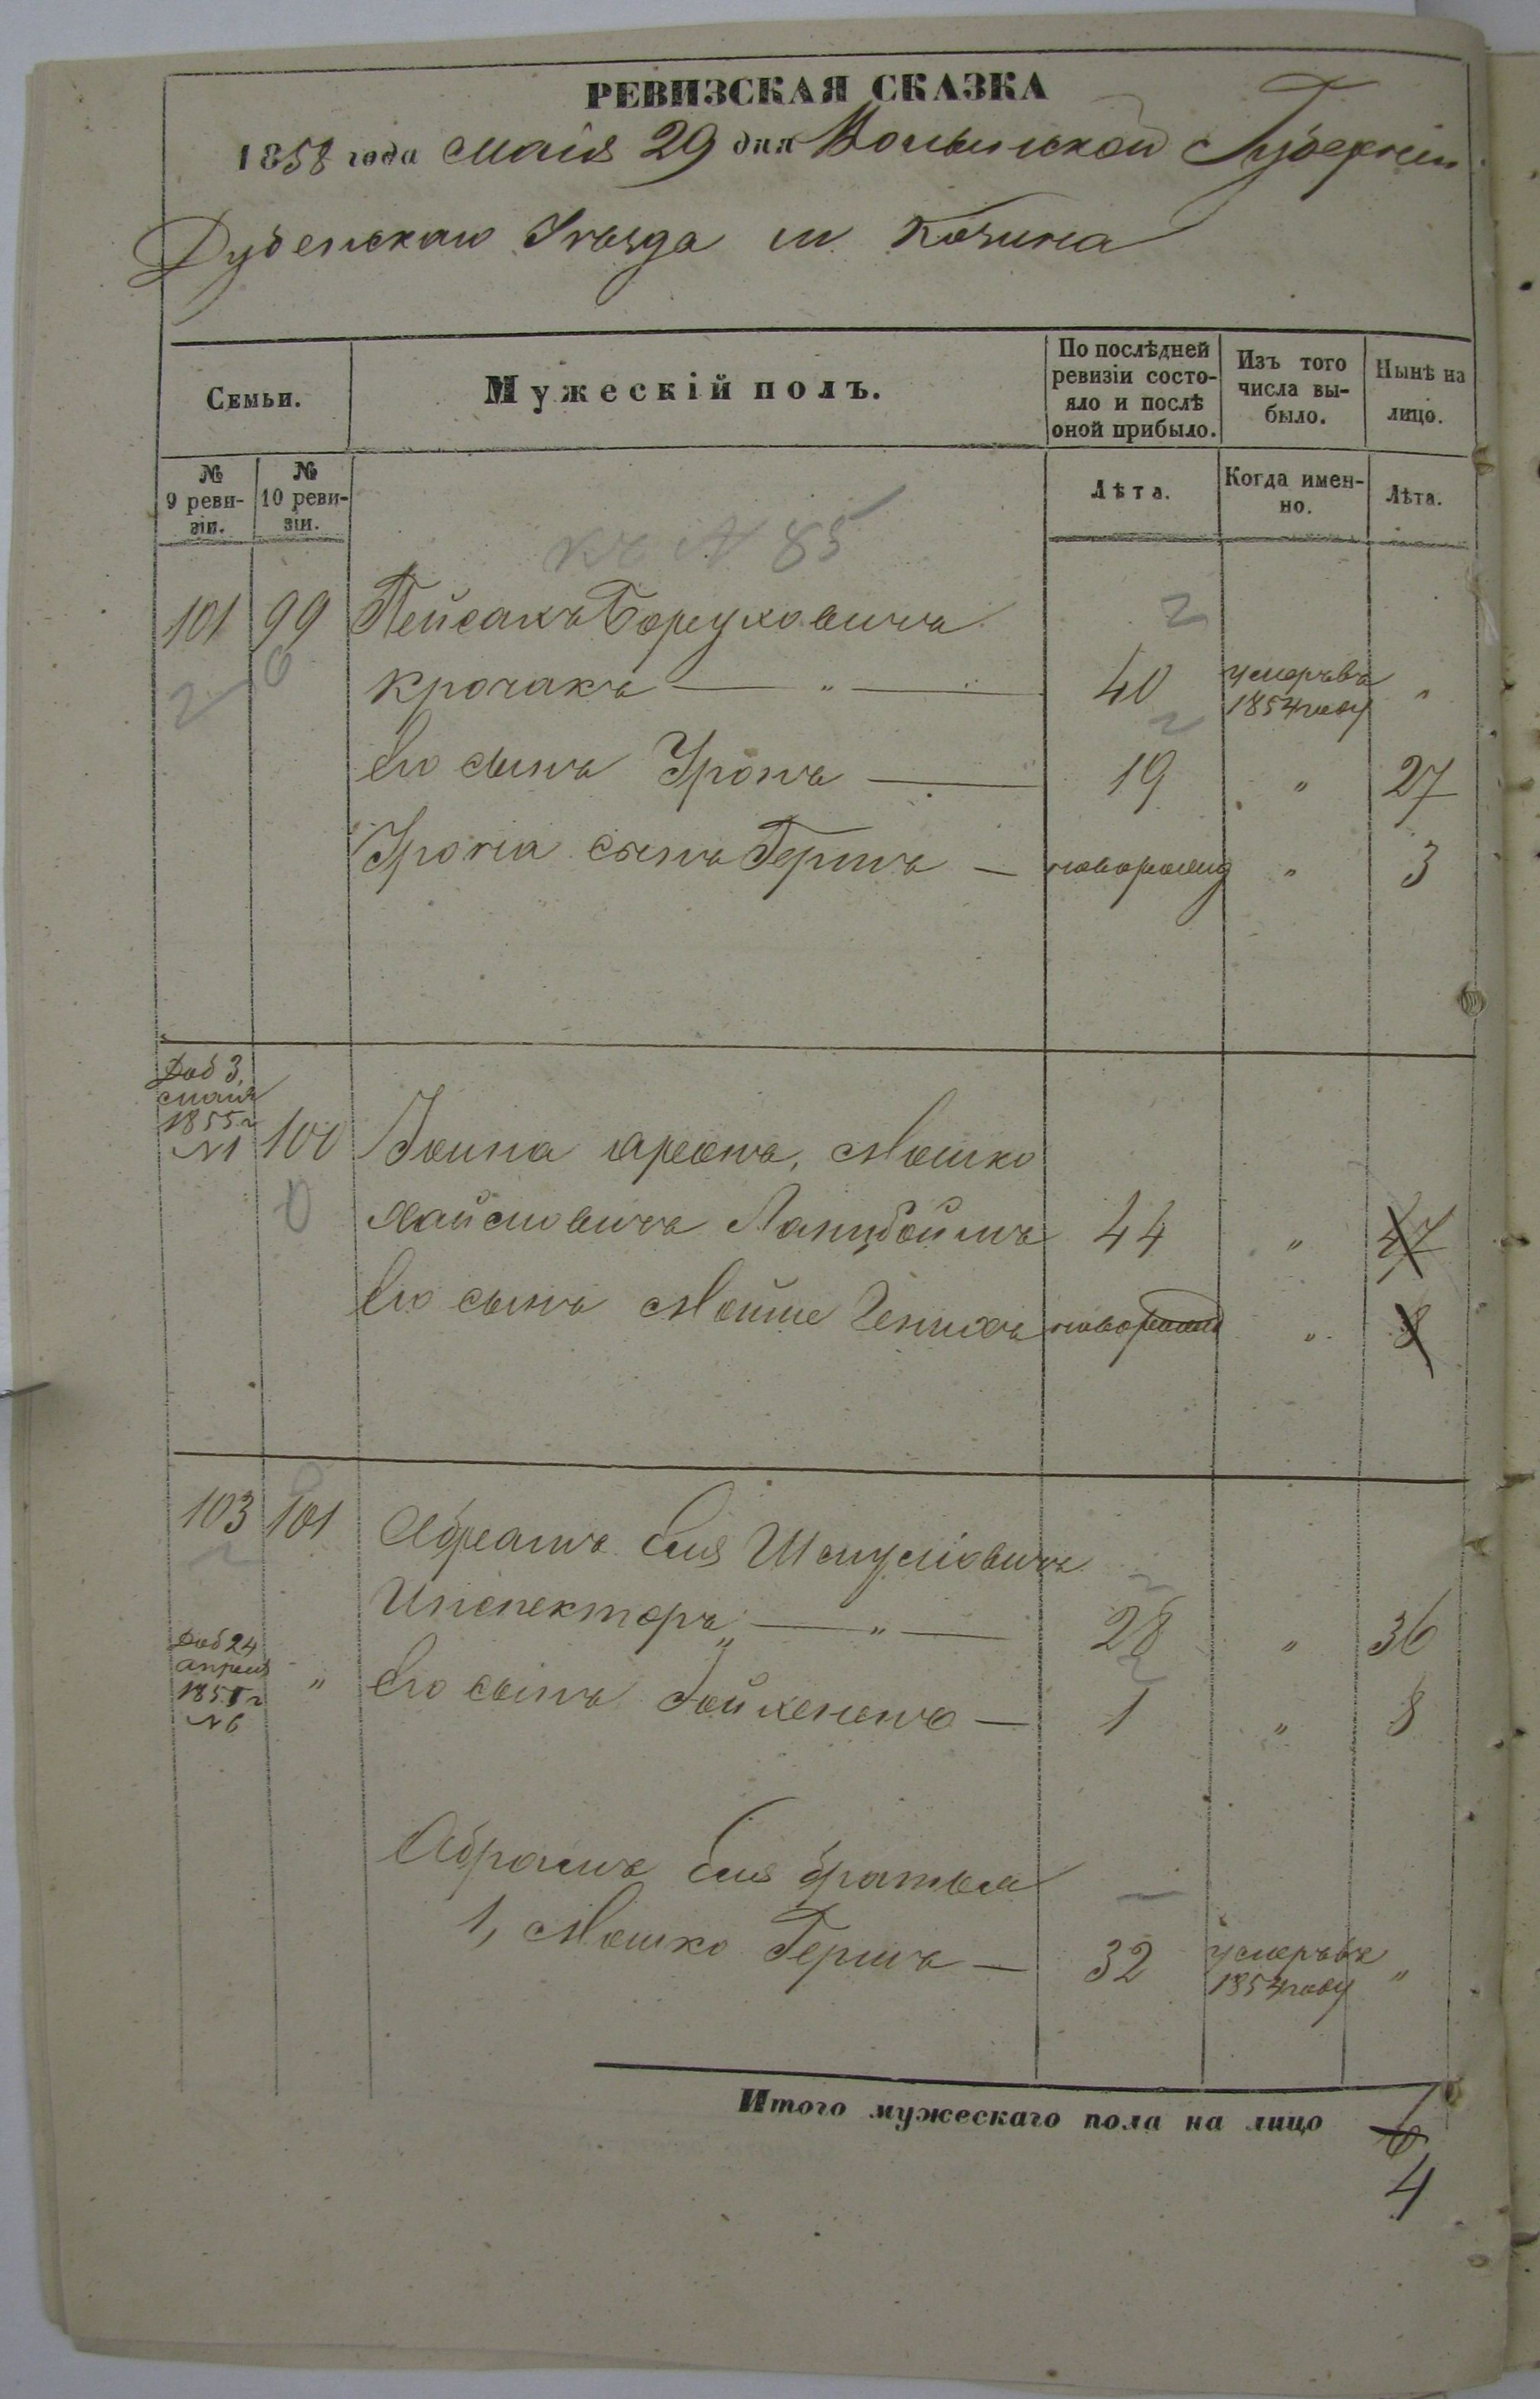 РЕВИЗСКАЯ СКАЗКА
1858 года Маія 29 дня Волынской Губерніи
Дубенскаго Уѣзда м. Козина
Семьи.
Мужескій полъ.
По послѣдней ревизіи состояло и послѣ оной прибыло.
Изъ того числа выбыло.
Нынѣ на лицо.
№ 9 ревизіи.
№ 10 ревизіи.
Лѣта.
Когда именно.
Лѣта.
къ N 85
101 99 Пейсахъ Боруховичъ
Крочакъ — " — 40 умеръ въ 1854 году "
Его сынъ Уронъ — 19 " 27
Урона сынъ Гершъ — новорожд " 3
Доб 3 маія 1855 г N1
100 Іоина Аронъ, Мошко
Хаймовичъ 44 " 47
Его сынъ Мойше Генихъ новорожд " 8
103 101 Абрамъ Еля Шмулiовичъ
Инспекторъ — " — 28 " 36
Доб 24 апреля 1851 г N 6
" Его сынъ — 1 " 8
Абрама Еля братья
1, Мошко Гершъ — 32 умеръ въ 1854 году "
Итого мужескаго пола на лицо 6
4